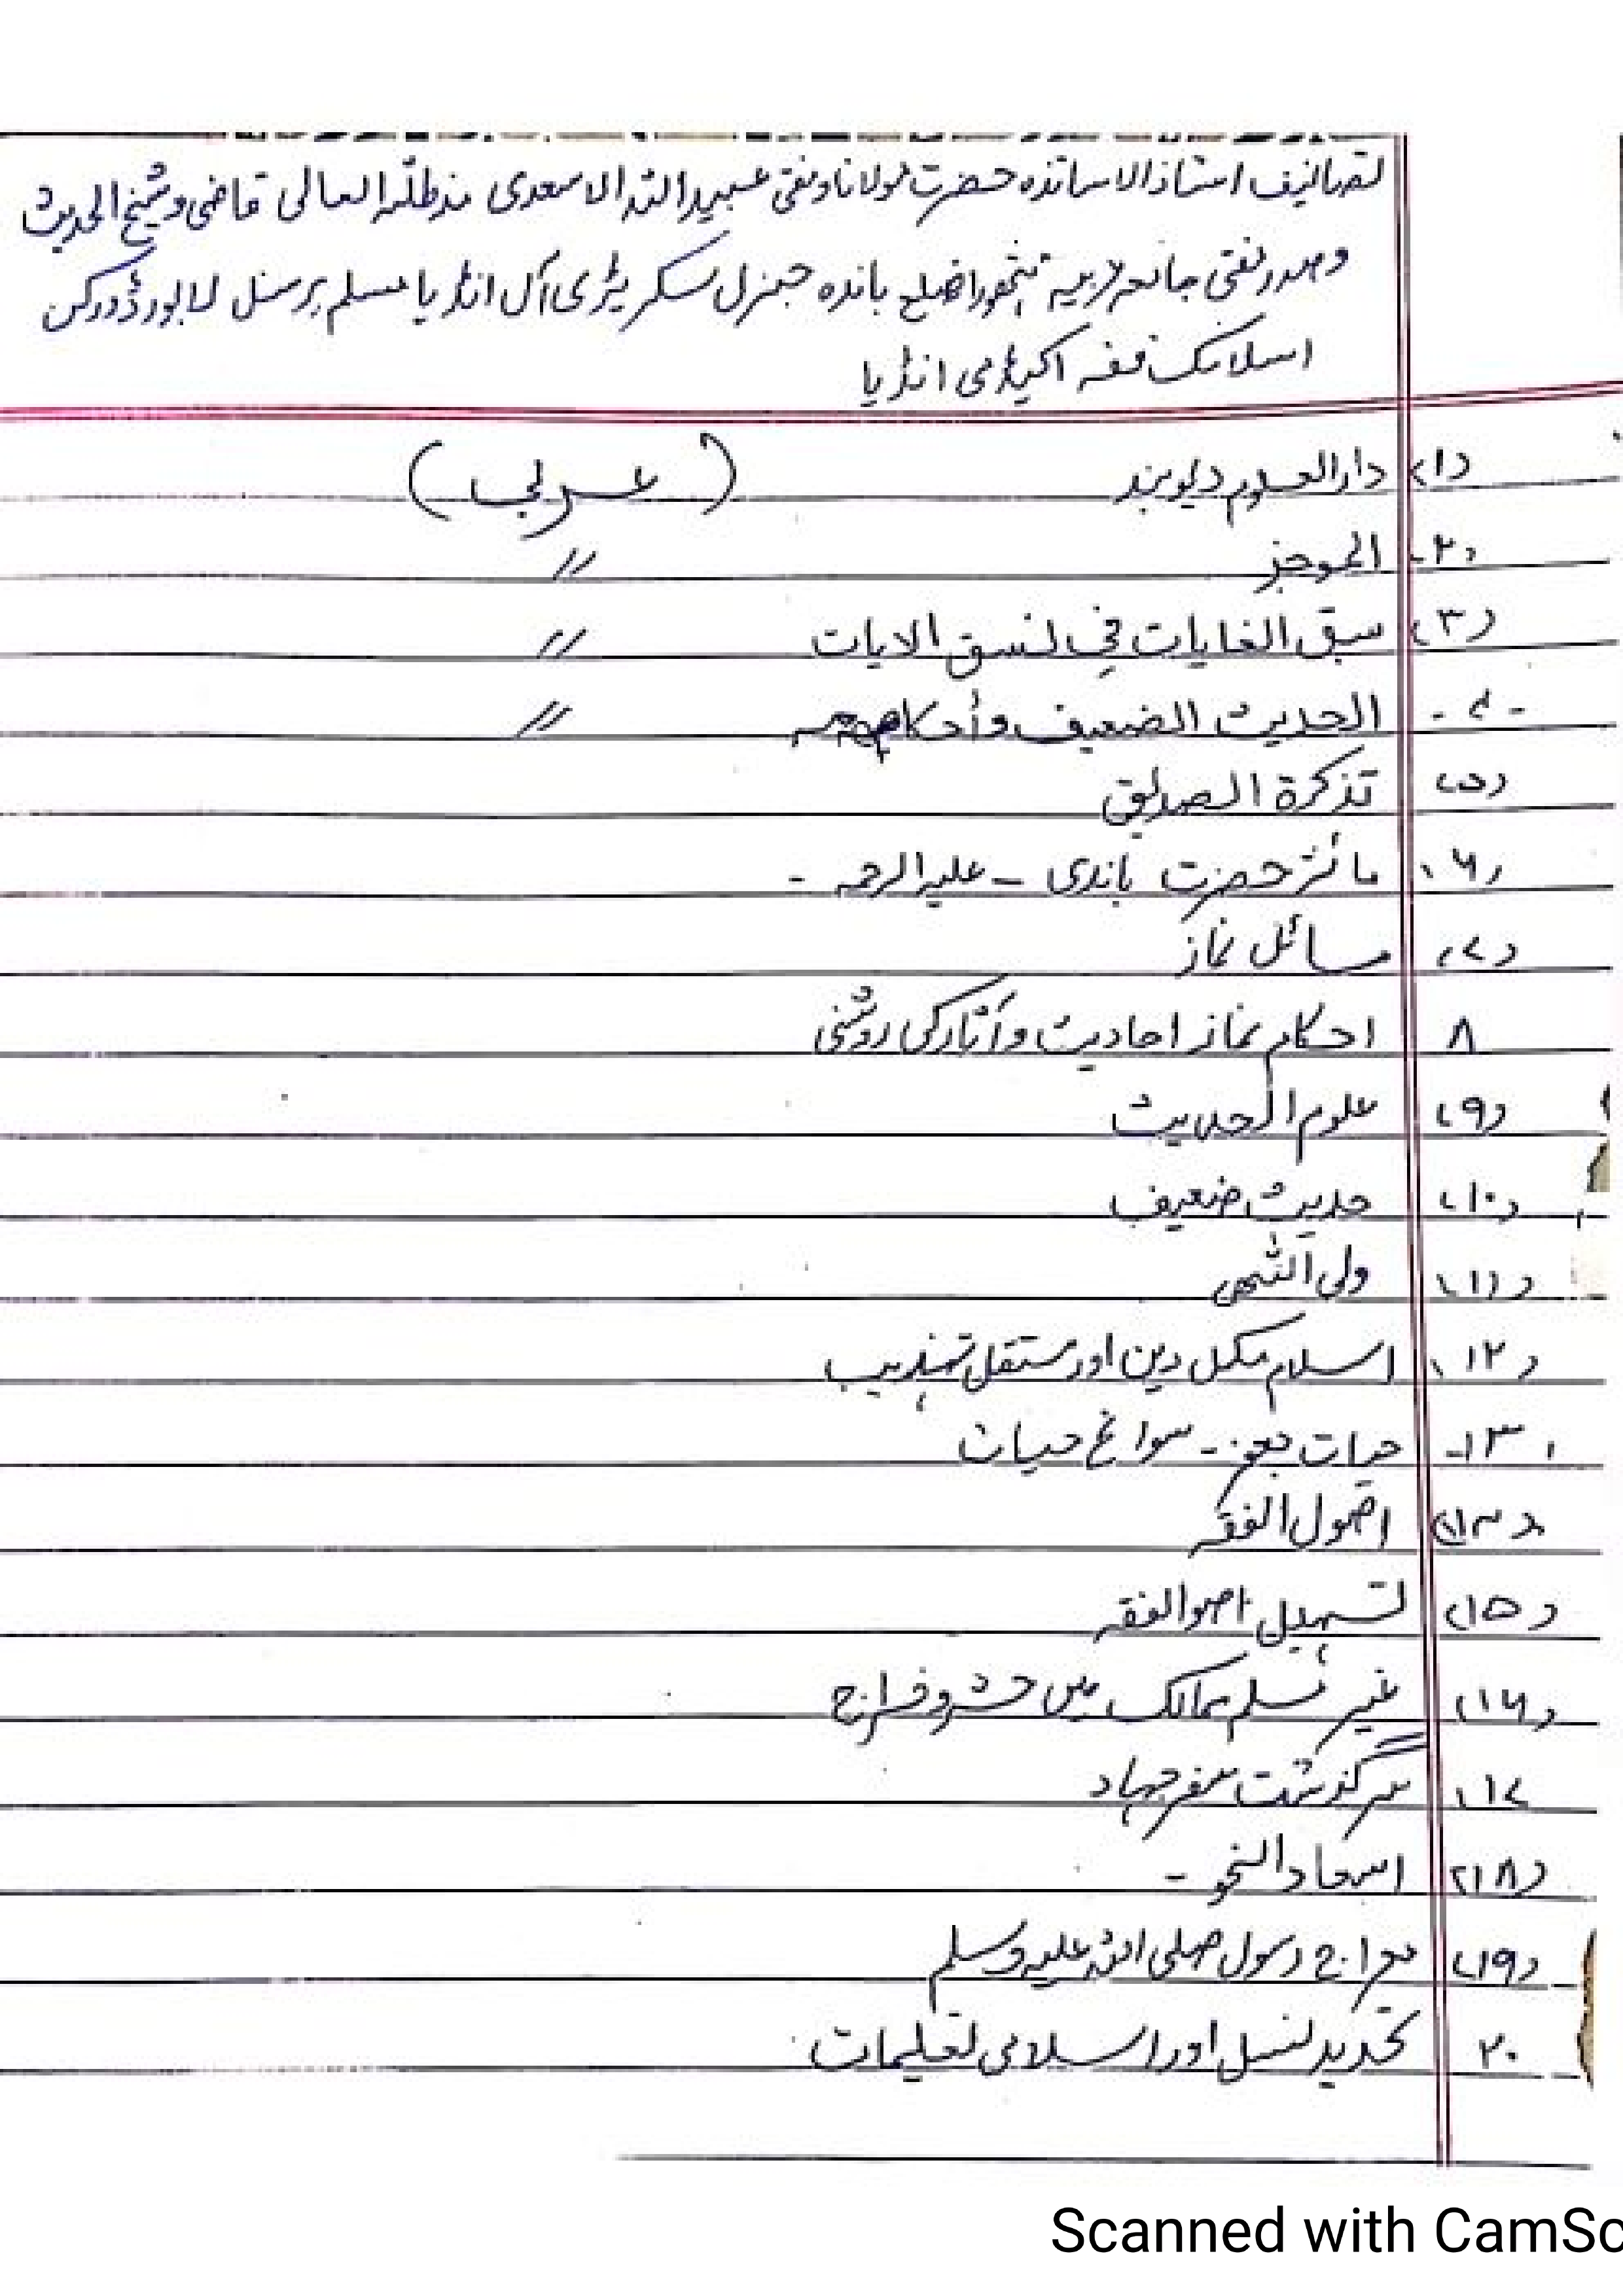 تصانیف استاذ الاساتذہ حضرت مولانا و مفتی عبید اللہ الاسعدی مدظلہ العالی قاضی و شیخ الحدیث
و صدر مفتی جامعہ عربیہ ہتھورا ضلع باندہ جنرل سکریٹری آل انڈیا مسلم پرسنل لا بورڈ و رکن
اسلامک فقہ اکیڈمی انڈیا
(۱) دارالعلوم دیوبند (عربی)
۲- الموجز 〃
(۳) سبق الغایات فی نسق الایات 〃
-۴- الحدیث الضعیف و أحکامہ 〃
(۵) تذکرة الصدیق
(۶) مآثر حضرت باندی - علیہ الرحمہ -
(۷) مسائل نماز
۸ احکام نماز احادیث و آثار کی روشنی
(۹) علوم الحدیث
(۱۰) حدیث ضعیف
(۱۱) ولی اللہی
(۱۲) اسلام مکمل دین اور مستقل تہذیب
۱۳- حیات - سوانح حیات
(۱۴) اصول الفقہ
(۱۵) تسہیل اصو الفقہ
(۱۶) غیر مسلم ممالک میں عشر و خراج
۱۷ سرگذشت سفر جہاد
(۱۸) اسعاد النحو -
(۱۹) معراج رسول صلی اللہ علیہ وسلم
۲۰ تحدید نسل اور اسلامی تعلیمات
Scanned with CamSc